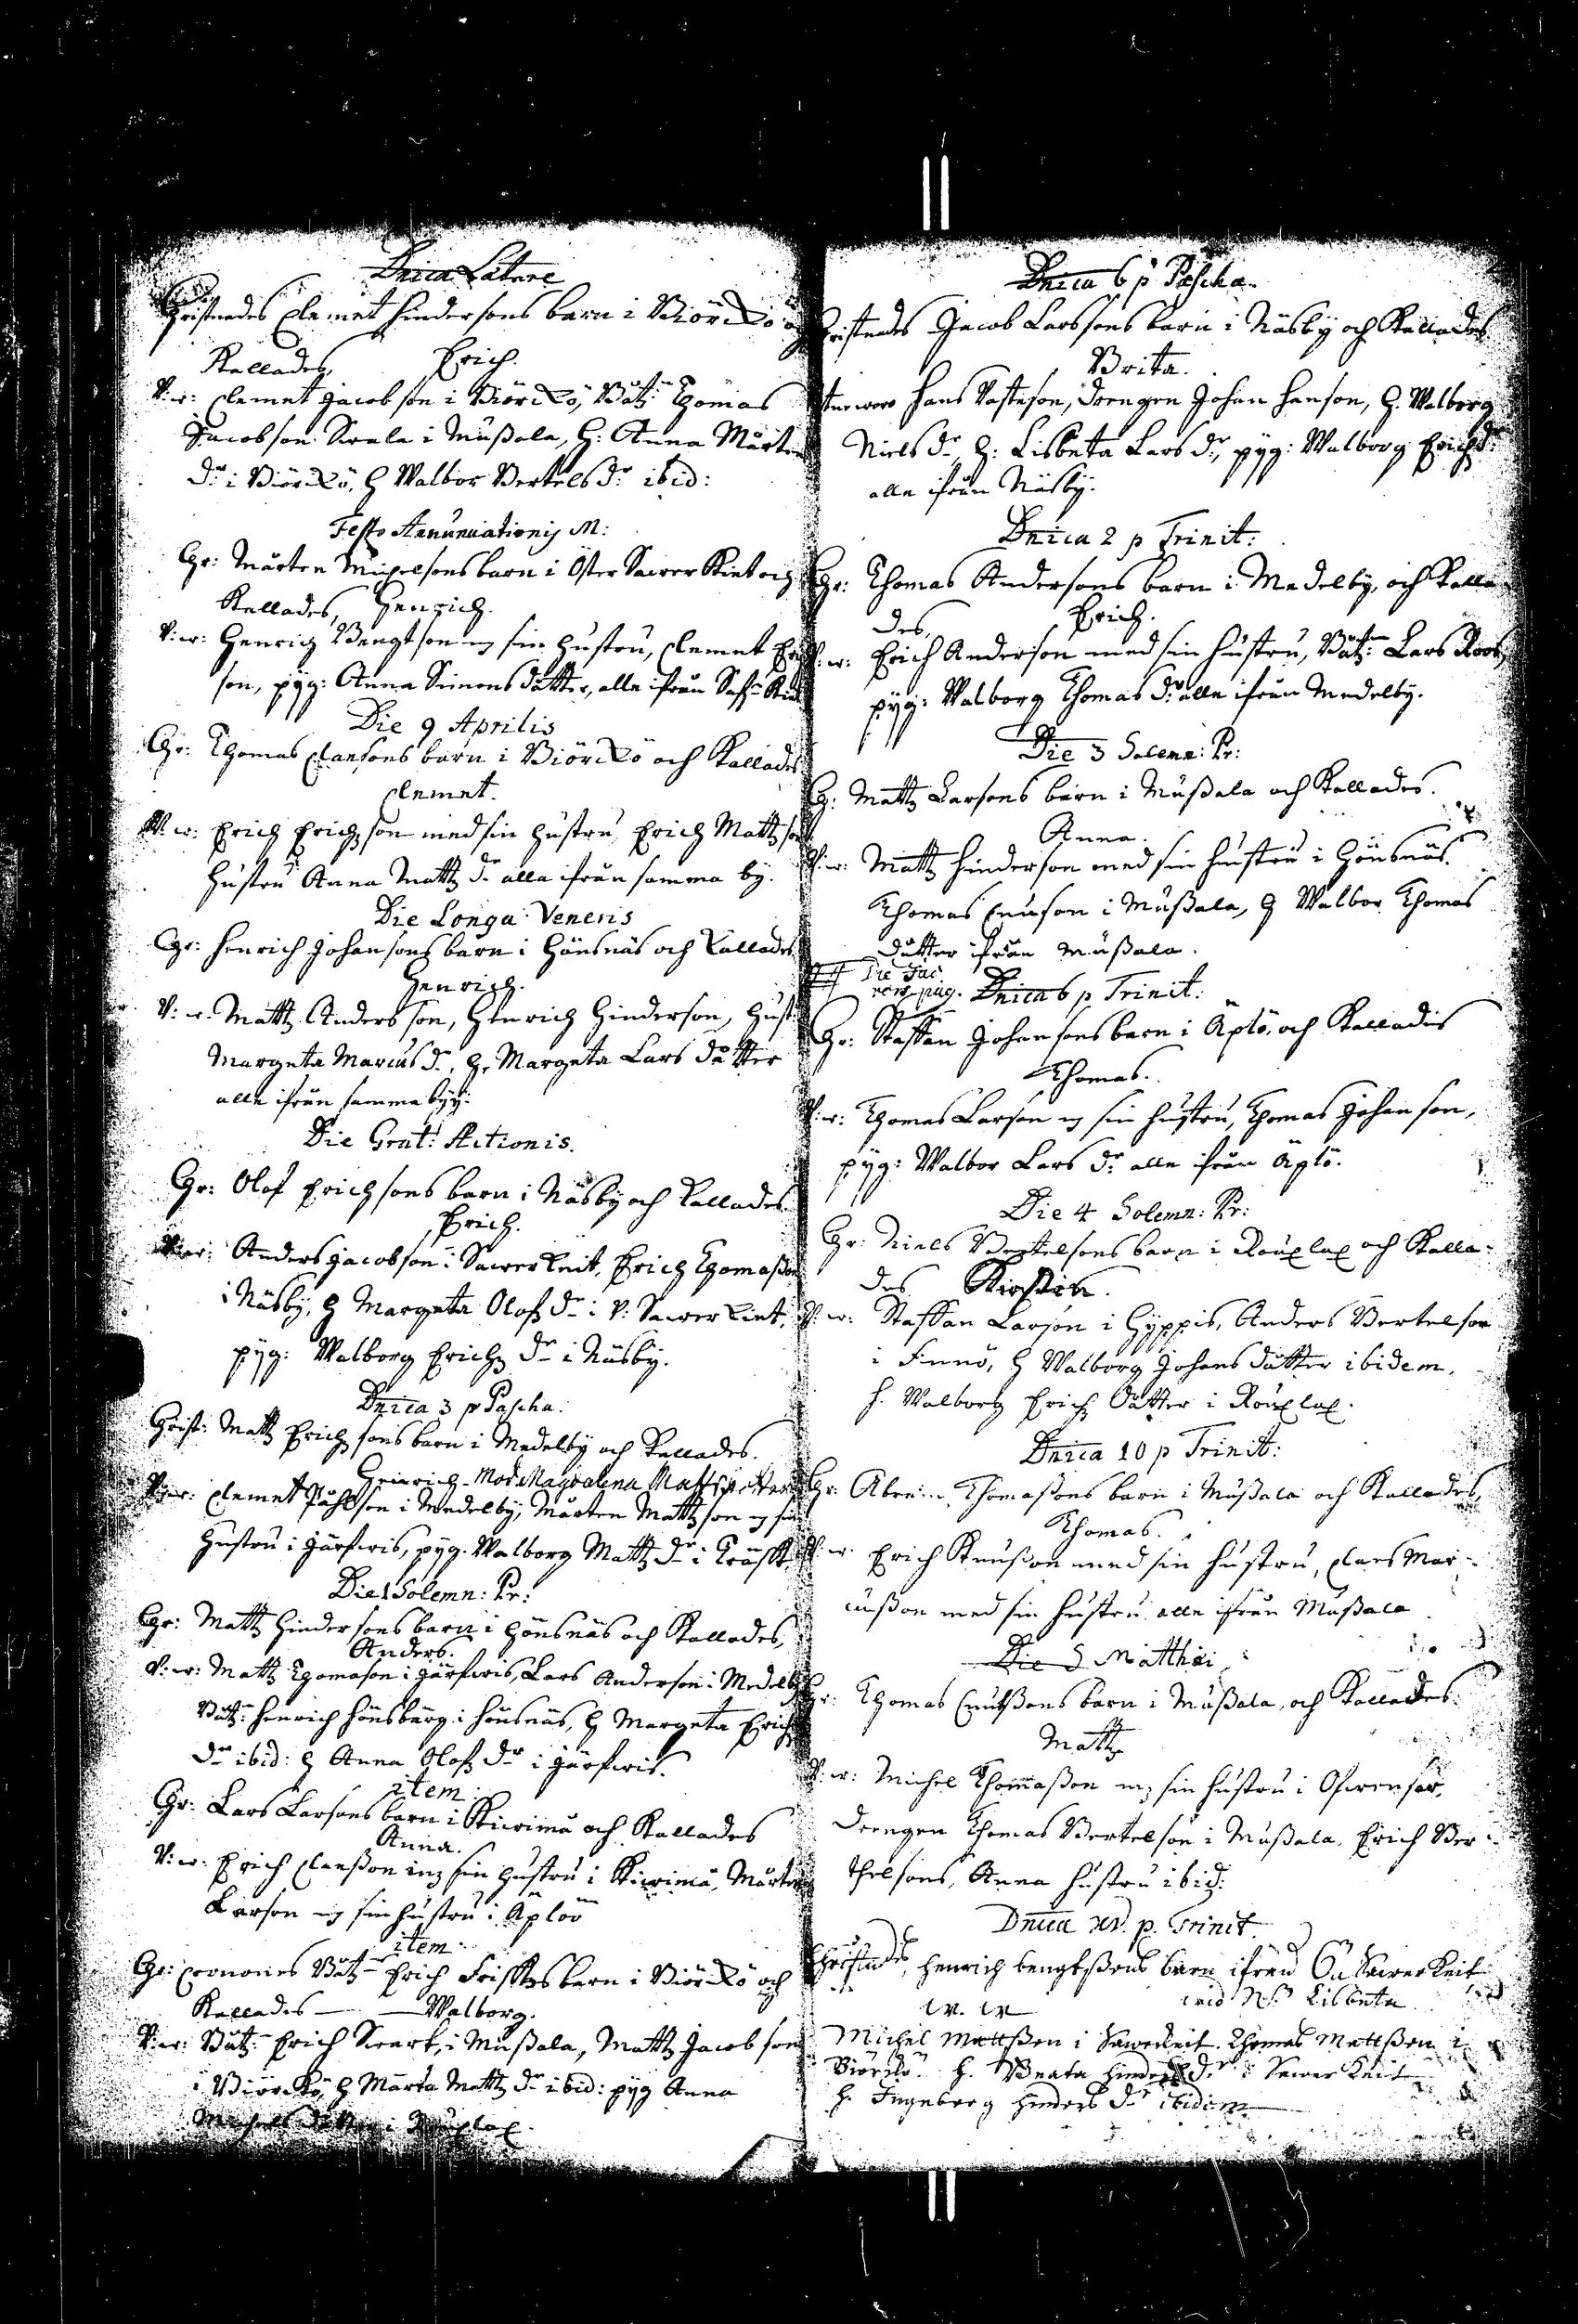 Dnica Lætare
Christnades Clemet Hindersons barn i Biörckö och
Kallades, Erich.
V: w: Clemet Jacobson i Biörckö, Båtz: Thomas
Jacobson Svala i Mußala, H: Anna Mårtens
dr i Biörckö, H Walbor Bertels dr ibid:
Festo Annunciationis M:
Chr: Mårten Michelsons barn i Öster Sawer Kiet och
Kallades, Henrich.
V: w: Henrich Bengtson m sin hustru, Clemet Erich
son, pyg: Anna Simons dåtter, alle ifrån
Die 9 Aprilis
Chr: Thomas Clausons barn i Biörckö och Kallades
Clemet.
V: w: Erich Erichson med sin hustru, Erich Mattzsons
hustru Anna Mattz dr alla ifrån samma by.
Die Longa Veneris
Chr: Henrich Johansons barn i Hönsnäs och Kallades
Henrich.
V: w. Mattz Andersson, Henrich Hinderson, Hust
Margeta Marcus d., H. Margeta Lars dåtter
alle ifrån samma byy:
Die Grat: Actionis.
Chr: Olof Erichsons barn i Näsby och Kallades
Erich.
V: w: Anders Jacobson i Sawerkeit, Erich Thomaßon
i Näsby, H Margeta Olofs dr i V: Sawerkiet,
pyg: Walborg Erichs dr i Näsby.
Dnica 3 p Pascha.
Christ: Mattz Erichsons barn i Medelby och Kallades.
Heinrich. Mod. Magdalena Matts dotter
V: w: Clemet Påhlson i Medelby, Mårten Mattzson m sin
hustru i Järfwis, pyg. Walborg Mattz dr i
Die 1 Solemn: Pr:
Chr: Mattz Hindersons barn i Hönsnäs och Kallades,
Anders.
V: w: Mattz Thomason i Järfwis, Lars Anderson i Medelby
Båtz: Henrich Hönsbärg i Hönsnäs, H Margeta Erichs
dr ibid: H Anna Olofs dr i Järfwis.
item
Chr: Lars Larsons barn i Kiwimå och Kallades
Anna.
V: w: Erich Claußon m sin hustru i Kiwimå, Mårten
Larson m sin hustru i Äplöö
item
Chr: Båtz Erich Friskes barn i Biörckö och
Kallades Walborg.
V: w: Båtz: Erich Swart, i Mußala, Mattz Jacobson
i Biörckö, H Märta Mattz dr ibid: pyg Anna
Michels dåtter i Rouxlax.
Dnica 6 p Pascha.
Christnades Jacob Larssons barn i Näsby och Kallades
Brita.
Hans Vasteson, drengen Johan Hanson, H. Walborg
Niels dr, H: Lisbeta Lars dr, pyg: Walborg Erichs dr
alle ifrån Näsby.
Dnica 2 p Trinit:
Chr: Thomas Andersons barn i Medelby, och Kalla
des, Erich.
V: w: Erich Anderson med sin hustru, Båtz: Lars Roos,
pyg: Walborg Thomas dr alle ifrån Medelby.
Die 3 Solemn: Pr:
Ch: Mattz Larsons barn i Mußala och Kallades.
Anna.
V: w: Mattz Hinderson med sin hustru i Hönsnäs.
Thomas Cnuson i Mußala, H Walbor Thomas
dåtter ifrån Mußala.
Die Jac.
vers. pag. Dnica 6 p Trinit:
Chr: Staffan Johansons barn i Äplö, och Kallades
Thomas.
V: w: Thomas Larson m sin hustru, Thomas Johanson,
pyg: Walbor Lars dr alle ifrån Äplö.
Die 4 Solemn: Pr:
Chr: Niels Bertelsons barn i Rouxlax och Kalla-
des Kirstin.
V: w: Staffan Larson i Hyppis, Anders Bertelson
i Finnö, H Walborg Johans dåtter ibidem,
H. Walborg Erichs dåtter i Rouxlax.
Dnica 10 p Trinit:
Chr: Abram Thomaßons barn i Mußala och Kallades,
Thomas.
V: w. Erich Knußon med sin hustru, Clas Mar-
cußon med sin hustru alle ifrån Mußala
Die S Matthæi
Chr: Thomas Cnutßons barn i Mußala, och Kallades:
Mattz
V: w: Michel Thomaßon m sin hustru i Ofwensor,
drengen Thomas Bertelson i Mußala, Erich Ber-
thelsons, Anna hustru ibid:
Dnica xv. p. Trinit.
Christnades, Henrich bengtßons barn ifrån Sawerkeit
w. w wid N: Lisbeta
Michel Mattßon i Sawerkeit Thomas Mattßon i
Biörckö. H. Beata Hinders dr i Sawerkeit
H. Ingeborg Hinders dr ibidem